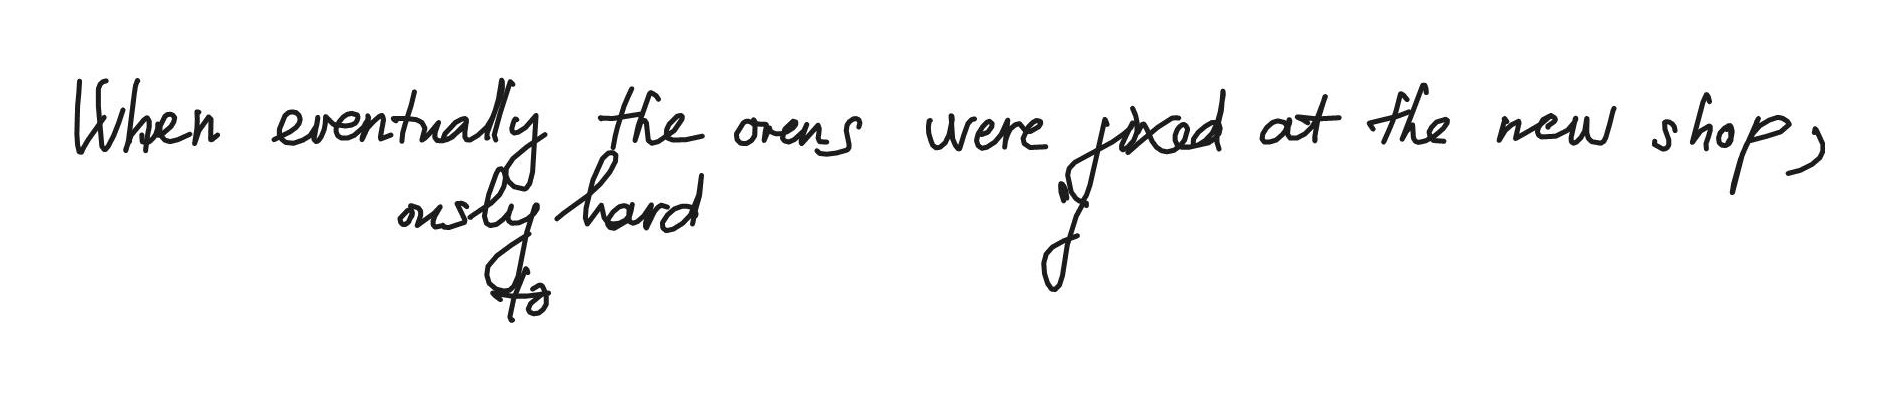 When eventually the ovens were fixed at the new shop,
ously hard
to